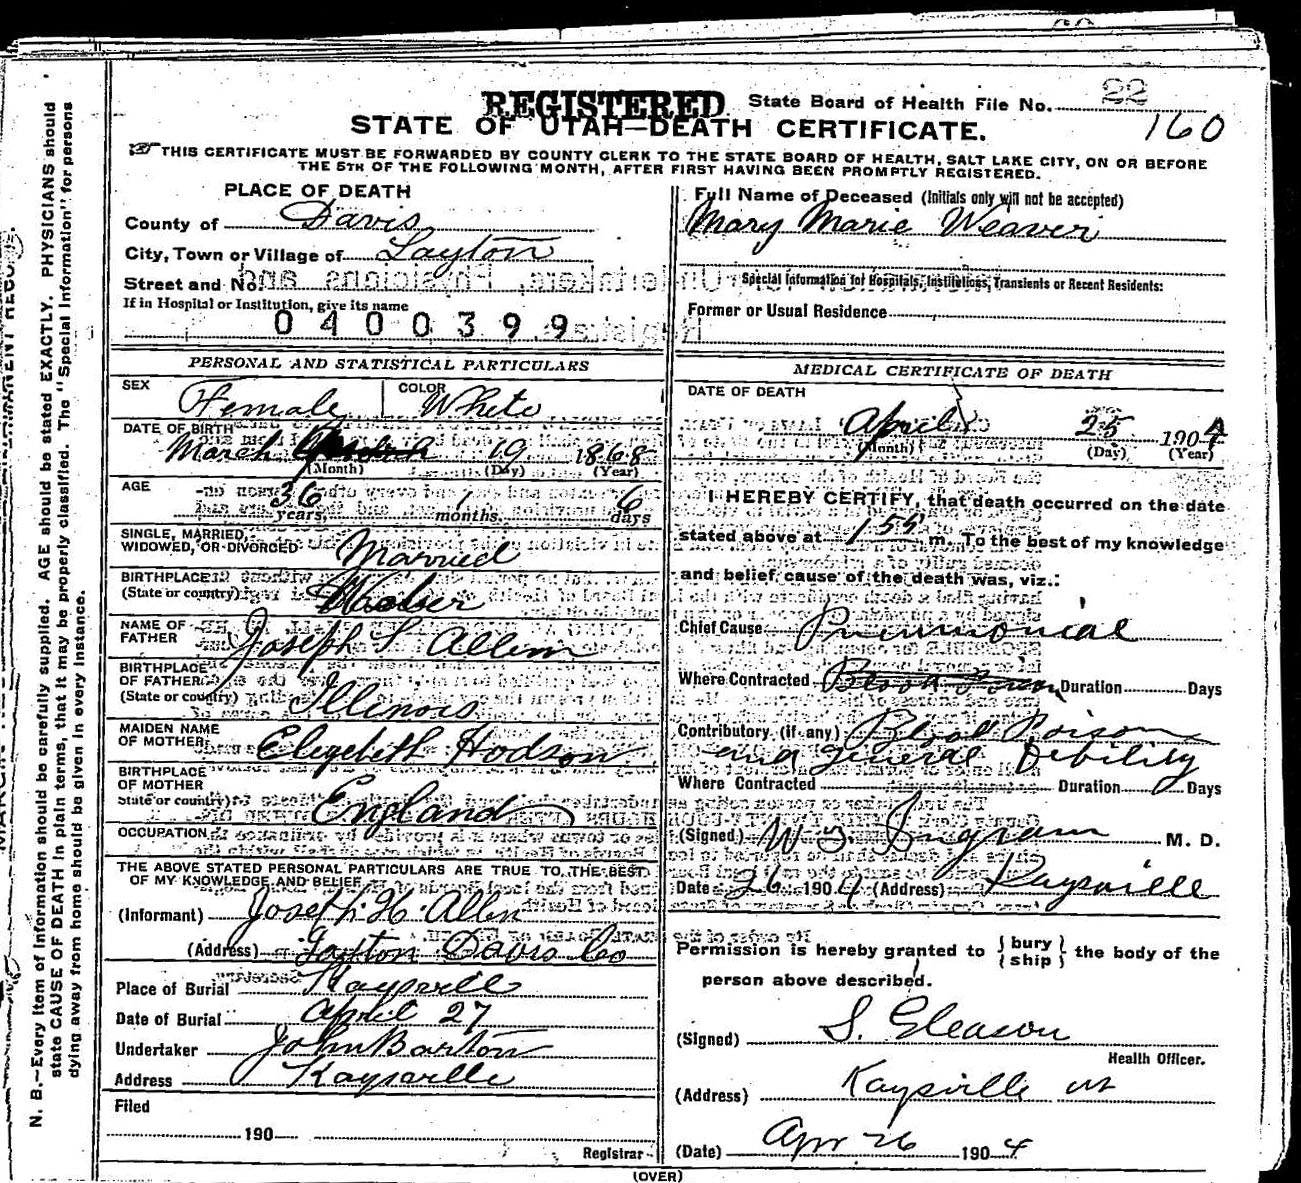 REGISTERED
State Board of Health File No. 22
160
STATE OF UTAH—DEATH CERTIFICATE.
THIS CERTIFICATE MUST BE FORWARDED BY COUNTY CLERK TO THE STATE BOARD OF HEALTH, SALT LAKE CITY, ON OR BEFORE
THE 5TH OF THE FOLLOWING MONTH, AFTER FIRST HAVING BEEN PROMPTLY REGISTERED.
N. B.—Every item of information should be carefully supplied. AGE should be stated EXACTLY. PHYSICIANS should
state CAUSE OF DEATH in plain terms, that it may be properly classified. The "Special Information" for persons
dying away from home should be given in every instance.
PLACE OF DEATH
County of Davis
City, Town or Village of Layton
Street and No.
If in Hospital or Institution, give its name
0400399
Full Name of Deceased (Initials only will not be accepted)
Mary Marie Weaver
Special Information for Hospitals, Institutions, Transients or Recent Residents:
Former or Usual Residence
PERSONAL AND STATISTICAL PARTICULARS
SEX Female COLOR White
DATE OF BIRTH
March 19 1868
(Month) (Day) (Year)
AGE
36 years, 1 months 6 days
SINGLE, MARRIED,
WIDOWED, OR DIVORCED Married
BIRTHPLACE
(State or country)
NAME OF
FATHER Joseph S Allen
BIRTHPLACE
OF FATHER
(State or country) Illinois
MAIDEN NAME
OF MOTHER Elizebeth Hodson
BIRTHPLACE
OF MOTHER
State or country) England
OCCUPATION
THE ABOVE STATED PERSONAL PARTICULARS ARE TRUE TO THE BEST
OF MY KNOWLEDGE AND BELIEF
(Informant) Joseph H. Allen
(Address) Layton Davis Co
Place of Burial Kaysville
Date of Burial April 27
Undertaker John Barton
Address Kaysville
Filed
190
Registrar
MEDICAL CERTIFICATE OF DEATH
DATE OF DEATH
April 25 1904
(Month) (Day) (Year)
I HEREBY CERTIFY, that death occurred on the date
stated above at 1 55 m. To the best of my knowledge
and belief cause of the death was, viz.:
Chief Cause Pneumonial
Where Contracted Blood Poison Duration Days
Contributory (if any) Blood Poison
and General Debility
Where Contracted Duration Days
(Signed) W S Ingram M. D.
Date 26 1904 (Address) Kaysville
Permission is hereby granted to {bury / ship} the body of the
person above described.
(Signed) S. Gleason
Health Officer.
(Address) Kaysville Ut
(Date) Apr 26 1904
(OVER)